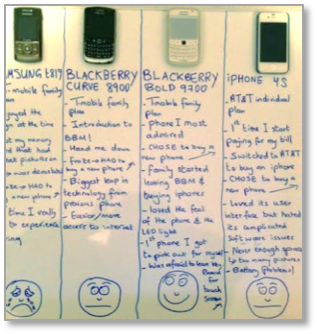 MSUNG t819
- mobile family
an
joyed the
gn at the time
st my memory
d that had
hat pictures on
HAD to
a new phone
time I really
to experience
BLACKBERRY
CURVE 8900
- Tmobile family
plan
- Introduction to
BBM!
- Hand me down
- HAD to
buy a new phone
- Biggest leap in
technology from
previous phone
- Easier/more
access to internet
BLACKBERRY
BOLD 9700
- Tmobile family
plan
- phone I most
admired
- CHOSE to buy a
new phone
- family started
leaving BBM &
buying iphones
- loved the feel
of the phone & the
LED light
- 1st phone I got
to pick out for myself
- Was afraid to leave key
Board for
touch
screen
iPHONE 4S
- AT&T individual
plan
- 1st time I start
paying for my bill
- Switched to AT&T
to buy an iphone
- CHOSE to buy a
new phone
- Loved its user
interface but hated
its complicated
software issues
- Never enough space
too many pictures
- Battery problems